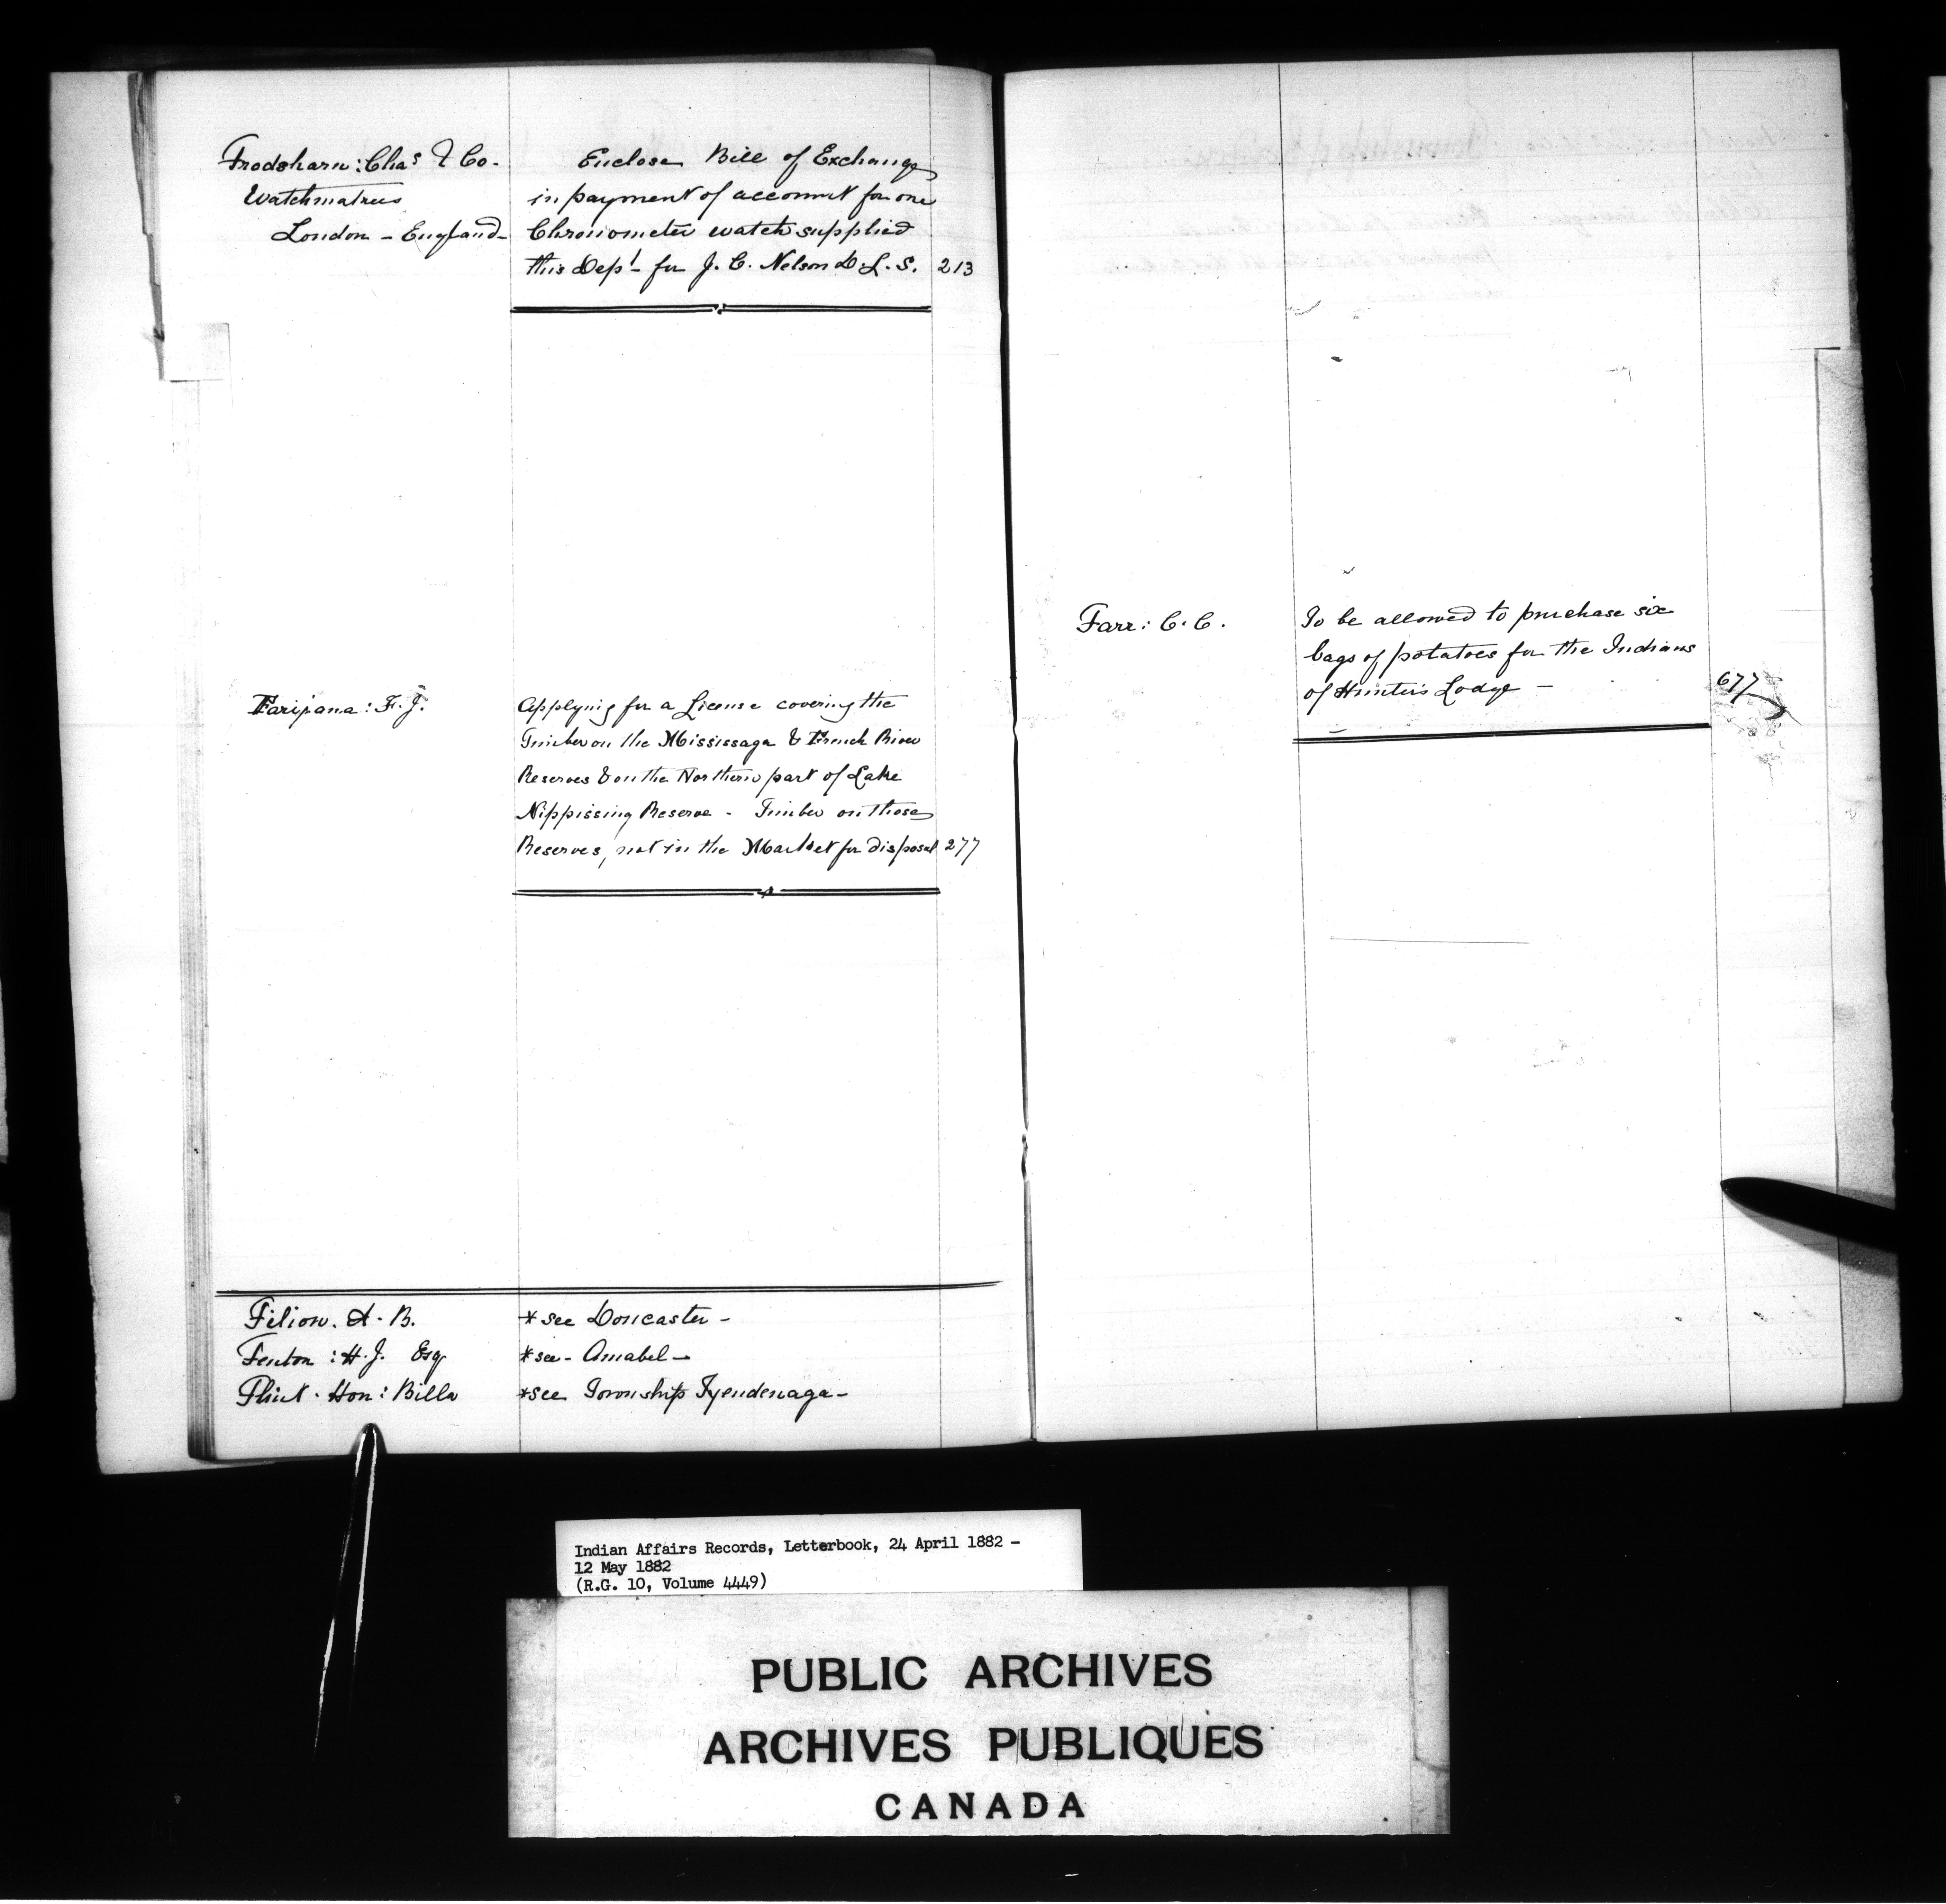 Frodsham: Chas & Co-
Watchmakers
London - England-
Enclose Bill of Exchange
in payment of account for one
Chronometer watch supplied
this Dept- for J. C. Nelson D.L.S. 213
Farijana: F. J.
Applying for a License covering the
Timber on the Mississaga & French River
Reserves & on the Northern part of Lake
Nippissing Reserve - Timber on those
Reserves, not in the Market for disposal 277
Filion. A. B. *see Doncaster -
Fenton: H. J. Esq *see - Amabel -
Flint. Hon: Billa *see Township Tyendenaga -
Farr: C. C.
To be allowed to purchase six
bags of potatoes for the Indians
of Hunter's Lodge - 677
Indian Affairs Records, Letterbook, 24 April 1882 -
12 May 1882
(R.G. 10, Volume 4449)
PUBLIC ARCHIVES
ARCHIVES PUBLIQUES
CANADA